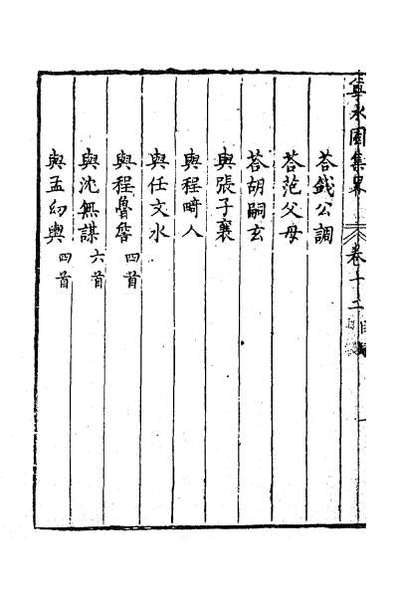 水園集畧 卷十二 目錄
荅錢公調
荅范父母
荅胡嗣玄
與張子襄
與程畸人
與任文水
與程魯詧 四首
與沈無謀 六首
與孟幼輿 四首